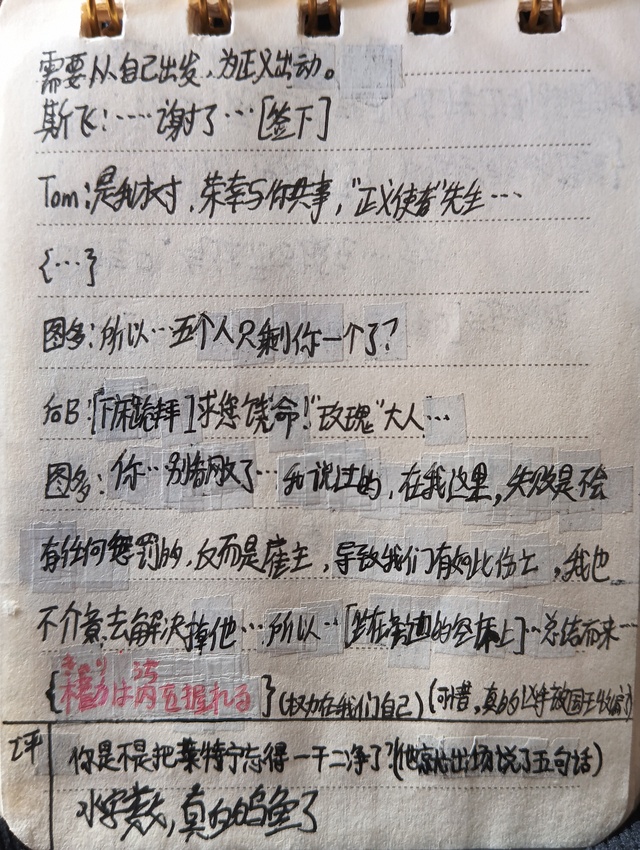 需要从自己出发，为正义出动。
斯飞：……谢了…[签下]
Tom：是我权寸，荣幸与你共事，"正义使者"先生…
{…}
图多：所以…五个人只剩你一个了？
后B：[下床跪拜]求您饶命！"玫瑰"大人…
图多：你…别酷刑了…我说过的，在我这里，失败是不会
有任何惩罚的，反而是雇主，导致我们有如此伤亡，我也
不介意去解决掉他…所以…[坐在旁边的空床上]…总结而来…
{権力は内を握れる}(权力在我们自己)(可惜，真的凶手被国王收留)
评 你是不是把莱特宁忘得一干二净了？(他总共出场说了五句话)
水字数，真的鸽鱼了